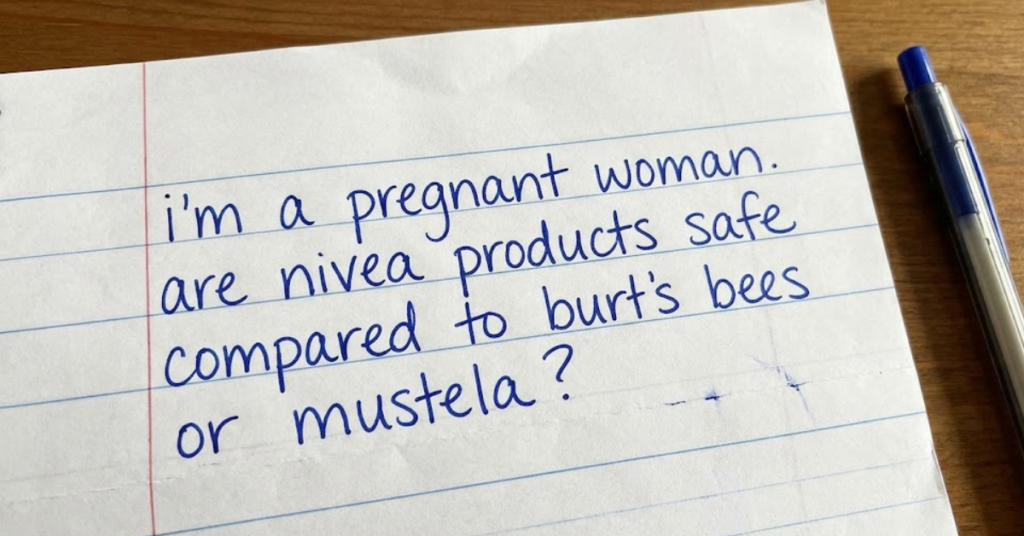 i'm a pregnant woman.
are nivea products safe
compared to burt's bees
or mustela?